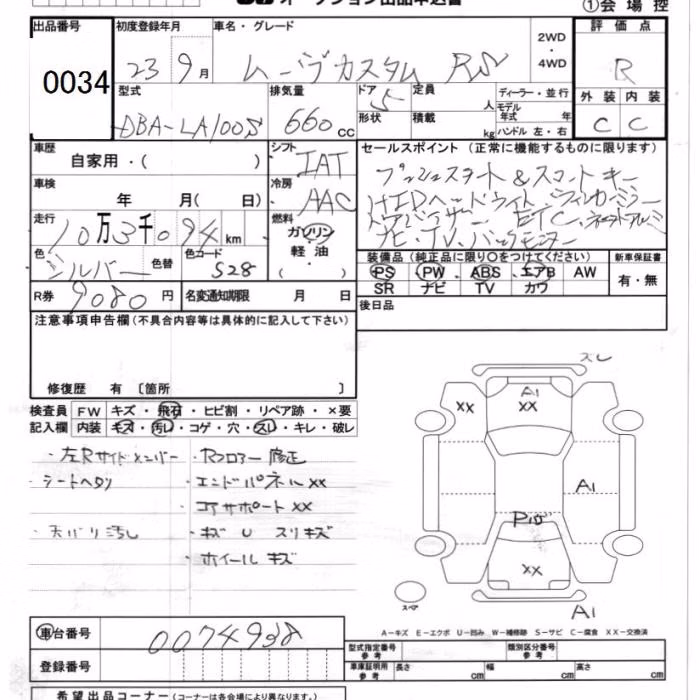 オークション出品申込書
①会場控
出品番号
0034
初度登録年月
23 9月
車名・グレード
ムーヴカスタム RS
2WD・4WD
評価点
R
型式
DBA-LA100S
排気量
660cc
ドア
5
定員
人
形状
積載
kg
ディーラー・並行
モデル年式 年
ハンドル 左・右
外装 内装
C C
車歴
自家用・( )
シフト
IAT
セールスポイント(正常に機能するものに限ります)
プッシュスタート&スマートキー
HIDヘッドライト・ウィンカーミラー
ETC
ナビ・TV・バックモニター
車検
年 月( 日)
冷房
AAC
走行
10万3千094km
燃料
ガソリン
軽油
( )
色
シルバー
色替
色コード
S28
装備品(純正品に限り○をつけてください)
PS PW ABS エアB AW
SR ナビ TV カワ
新車保証書
有・無
R券
9080円
名変通知期限 月 日
後日品
注意事項申告欄(不具合内容等は具体的に記入して下さい)
修復歴 有〔箇所 〕
検査員 FW キズ・飛石・ヒビ割・リペア跡・×要
記入欄 内装 キズ・汚れ・コゲ・穴・スレ・キレ・破レ
・左Rサイドメンバー ・Rフロアー 修正
・シートヘタリ ・エンドパネルXX
・コアサポートXX
・天バリ汚し ・キズ U スリキズ
・ホイールキズ
スレ
XX
A1
XX
A1
P15
XX
スペア
A1
A-キズ E-エクボ U-凹み W-補修跡 S-サビ C-腐食 XX-交換済
車台番号
0074938
登録番号
型式指定番号
参考
類別区分番号
参考
車庫証明用
参考
長さ cm 幅 cm 高さ cm
希望出品コーナー(コーナーは各会場により異なります。)